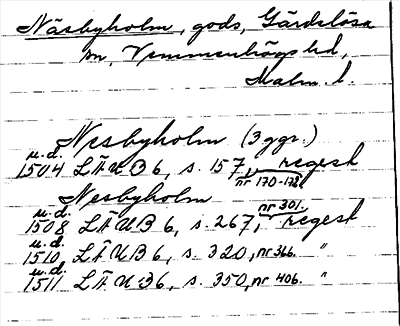 Näsbyholm, gods, Gärdslösa
sn, Vemmenhögs hd,
Malm. l.
Nesbyholm (3 ggr.)
u.d.
1504 LÄUB 6, s. 157, regest
nr 170-172.
Nesbyholm
u.d. nr 301.
1508 LÄUB 6, s. 267, regest
u.d.
1510 LÄUB 6, s. 320, nr 366. "
u.d.
1511 LÄUB 6, s. 350, nr 406. "